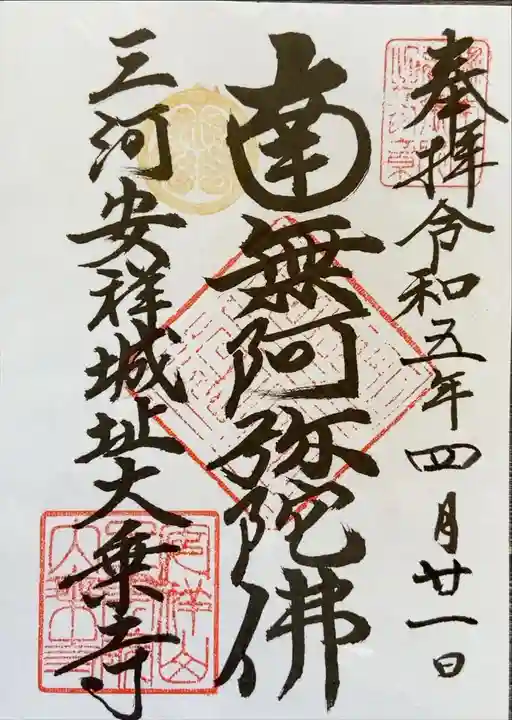 奉拝 令和五年四月廿一日
南無阿弥陀佛
三河安祥城址大乗寺